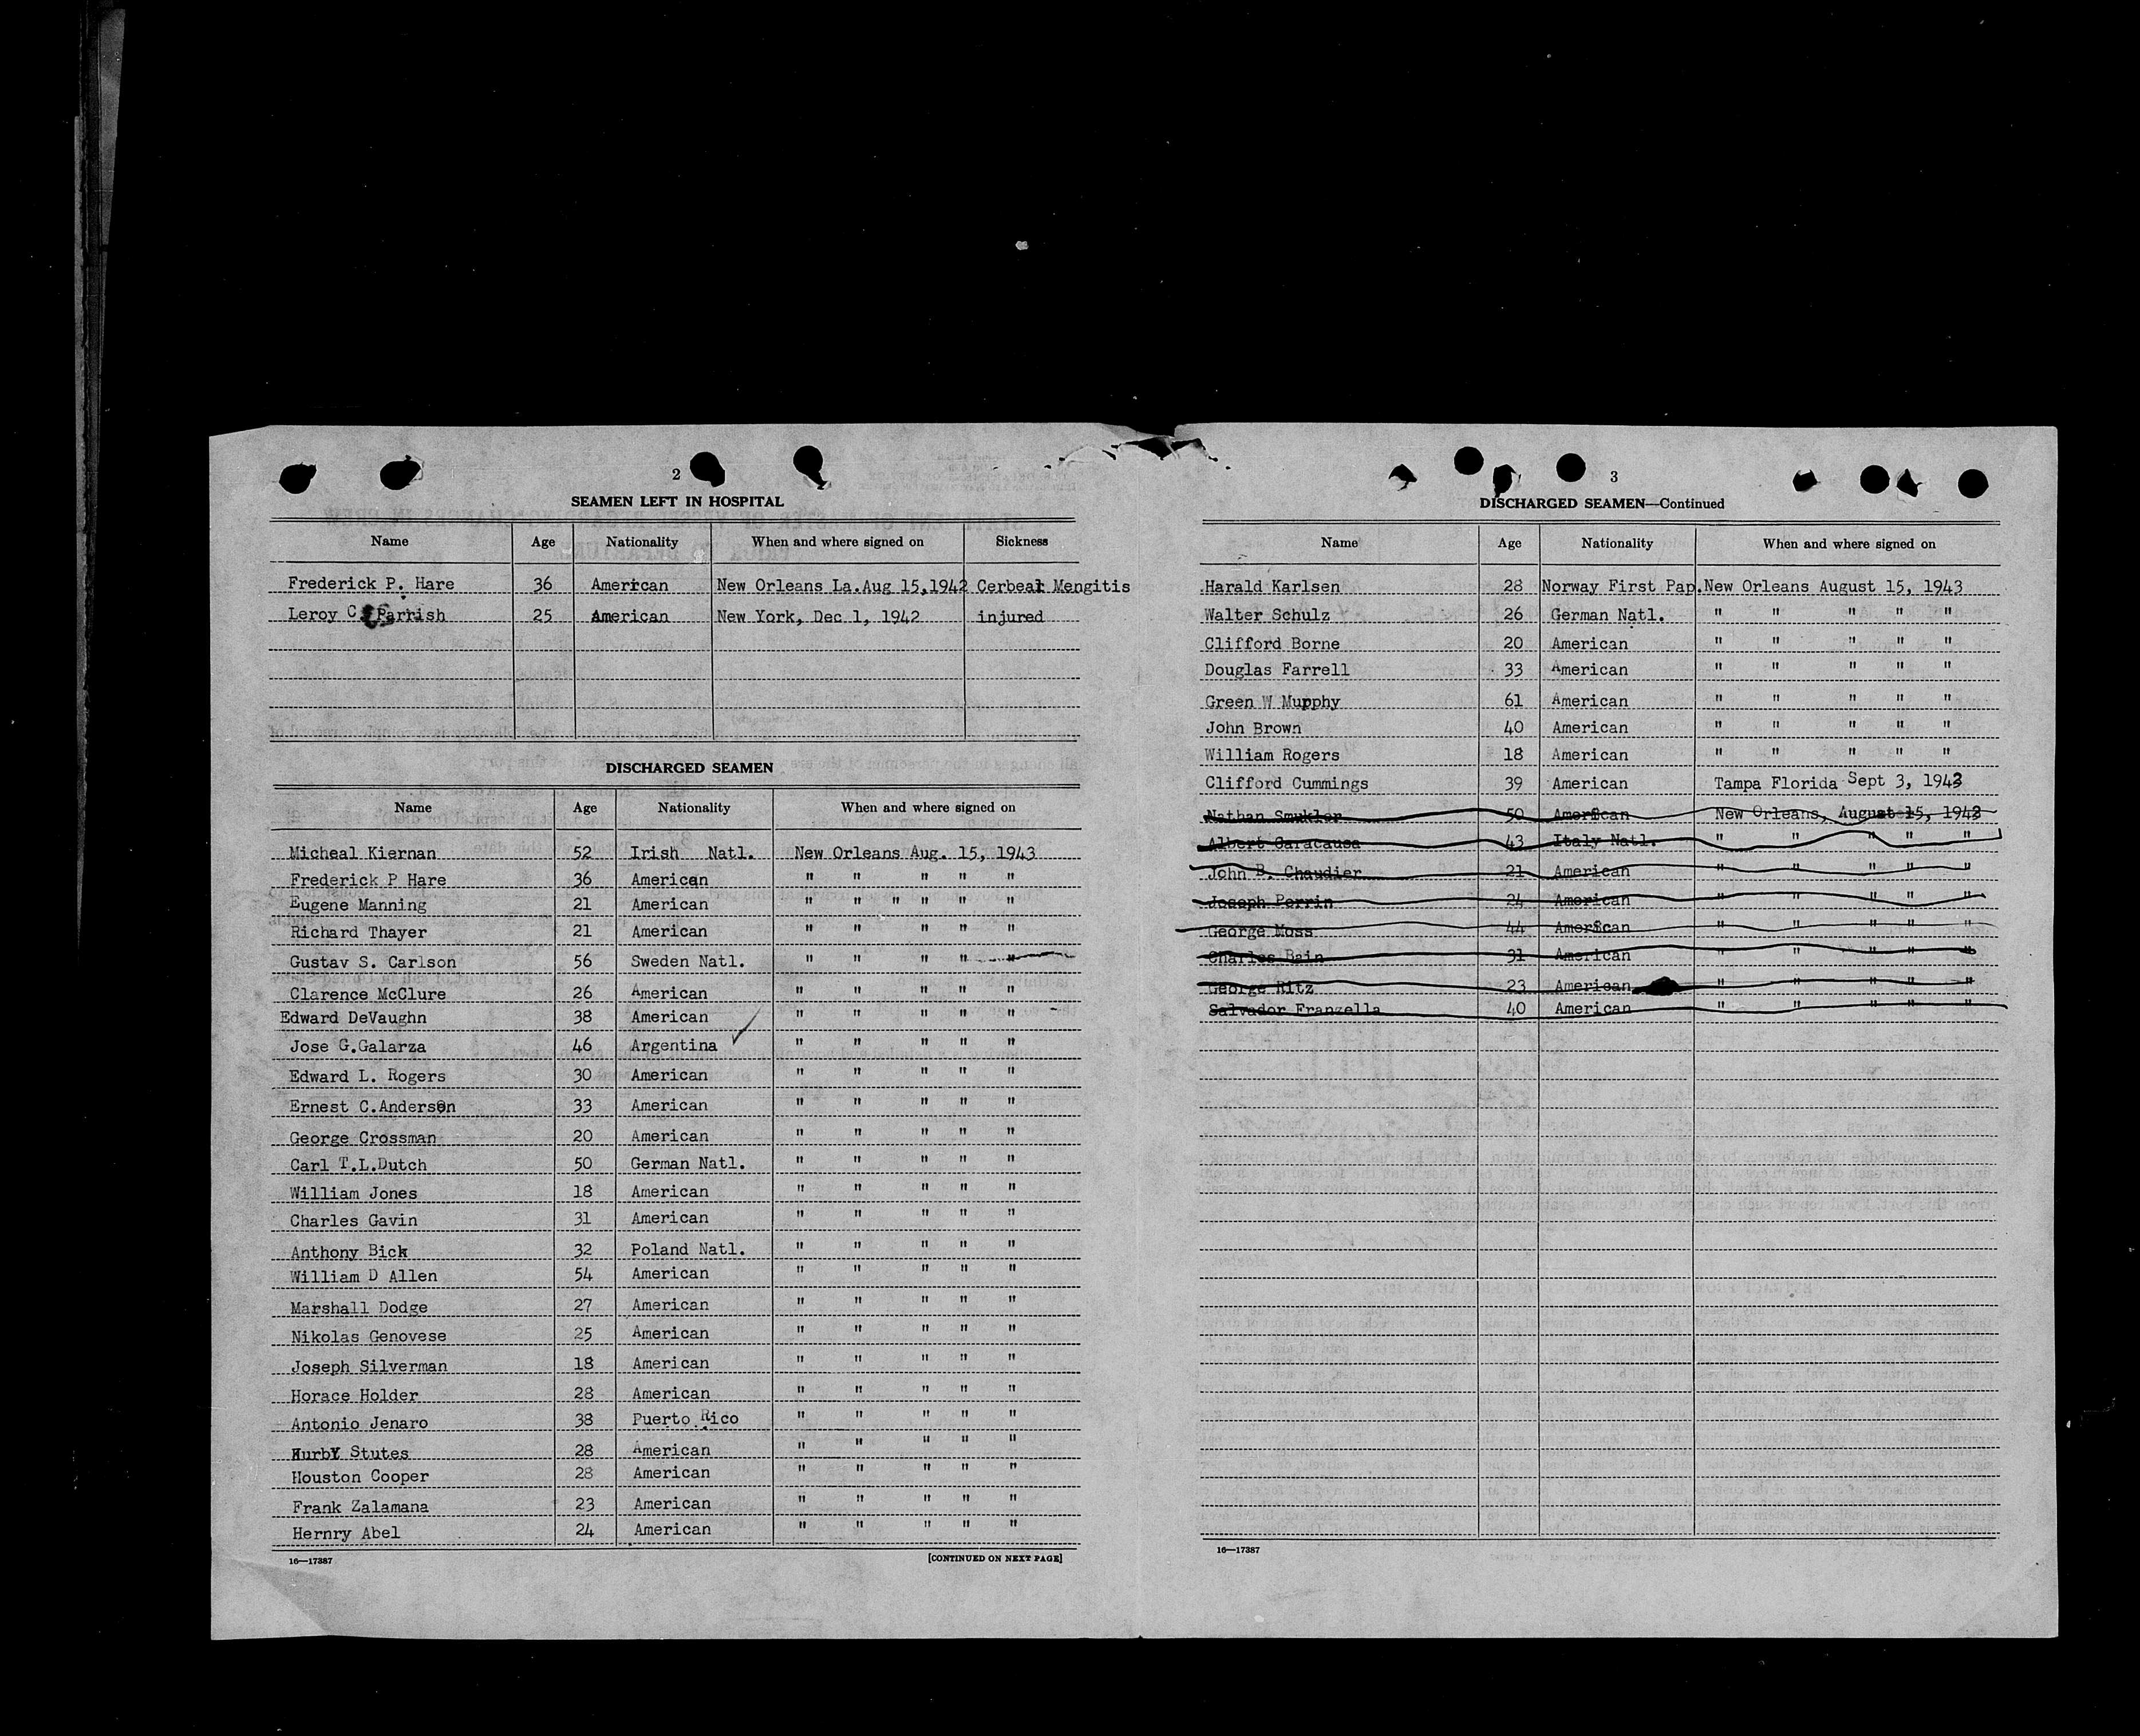 2
SEAMEN LEFT IN HOSPITAL
Name Age Nationality When and where signed on Sickness
Frederick P. Hare 36 American New Orleans La.Aug 15,1942 Cerbeal Mengitis
Leroy C Parrish 25 American New York, Dec 1, 1942 injured
DISCHARGED SEAMEN
Name Age Nationality When and where signed on
Micheal Kiernan 52 Irish Natl. New Orleans Aug. 15, 1943
Frederick P Hare 36 American " " " " "
Eugene Manning 21 American " " " " " "
Richard Thayer 21 American " " " " "
Gustav S. Carlson 56 Sweden Natl. " " " " "
Clarence McClure 26 American " " " " "
Edward DeVaughn 38 American " " " " "
Jose G.Galarza 46 Argentina ✓ " " " " "
Edward L. Rogers 30 American " " " " "
Ernest C.Anderson 33 American " " " " "
George Crossman 20 American " " " " "
Carl T.L.Dutch 50 German Natl. " " " " "
William Jones 18 American " " " " "
Charles Gavin 31 American " " " " "
Anthony Bick 32 Poland Natl. " " " " "
William D Allen 54 American " " " " "
Marshall Dodge 27 American " " " " "
Nikolas Genovese 25 American " " " " "
Joseph Silverman 18 American " " " " "
Horace Holder 28 American " " " " "
Antonio Jenaro 38 Puerto Rico " " " " "
Hurby Stutes 28 American " " " " "
Houston Cooper 28 American " " " " "
Frank Zalamana 23 American " " " " "
Hernry Abel 24 American " " " " "
16—17387 [CONTINUED ON NEXT PAGE]
3
DISCHARGED SEAMEN—Continued
Name Age Nationality When and where signed on
Harald Karlsen 28 Norway First Pap. New Orleans August 15, 1943
Walter Schulz 26 German Natl. " " " " "
Clifford Borne 20 American " " " " "
Douglas Farrell 33 American " " " " "
Green W Mupphy 61 American " " " " "
John Brown 40 American " " " " "
William Rogers 18 American " " " " "
Clifford Cummings 39 American Tampa Florida Sept 3, 1943
Nathan Smukler 50 American New Orleans, August 15, 1943
Albert Caracausa 43 Italy Natl. " " " " "
John B. Chaudier 21 American " " " " "
Joseph Perrin 24 American " " " " "
George Moss 44 American " " " " "
Charles Bain 31 American " " " " "
George Ritz 23 American " " " " "
Salvador Franzella 40 American " " " " "
16—17387